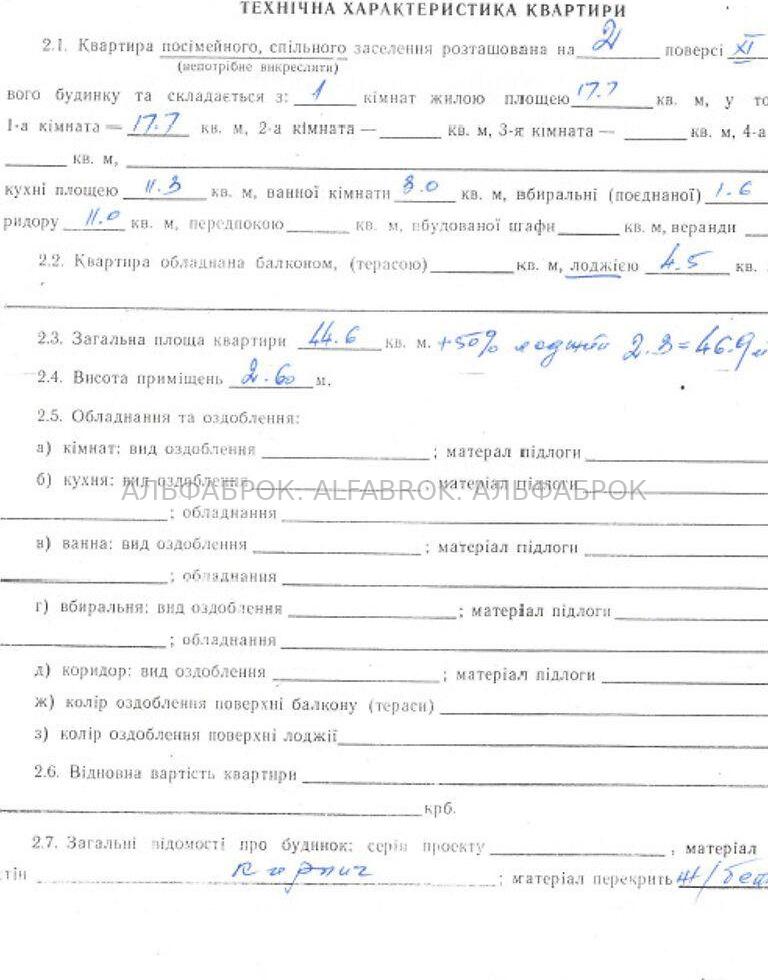 ТЕХНІЧНА ХАРАКТЕРИСТИКА КВАРТИРИ
2.1. Квартира посімейного, спільного заселення розташована на 2 поверсі XI
(непотрібне викреслити)
вого будинку та складається з: 1 кімнат жилою площею 17.7 кв. м, у то
1-а кімната — 17.7 кв. м, 2-а кімната — кв. м, 3-я кімната — кв. м, 4-а
кв. м,
кухні площею 11.3 кв. м, ванної кімнати 3.0 кв. м, вбиральні (поєднаної) 1.6
ридору 11.0 кв. м, передпокою кв. м, вбудованої шафи кв. м, веранди
2.2. Квартира обладнана балконом, (терасою) кв. м, лоджією 4.5 кв.
2.3. Загальна площа квартири 44.6 кв. м. +50% лоджии 2.3=46.9
2.4. Висота приміщень 2.60 м.
2.5. Обладнання та оздоблення:
а) кімнат: вид оздоблення ; матерал підлоги
б) кухня: вид оздоблення ; матеріал підлоги
АЛЬФАБРОК. ALFABROK. АЛЬФАБРОК
; обладнання
в) ванна: вид оздоблення ; матеріал підлоги
; обладнання
г) вбиральня: вид оздоблення ; матеріал підлоги
; обладнання
д) коридор: вид оздоблення ; матеріал підлоги
ж) колір оздоблення поверхні балкону (тераси)
з) колір оздоблення поверхні лоджії
2.6. Відновна вартість квартири
крб.
2.7. Загальні відомості про будинок: серія проекту , матеріал
стін кирпич ; матеріал перекрить ж/бет